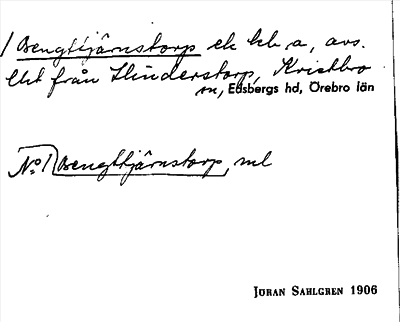 1 Bengttjärnstorp ek kb a, avs.
Utt från Hinderstorp, Kristbro
m, Edsbergs hd, Örebro län
No 1 Bengttjärnstorp, ml
JÖRAN SAHLGREN 1906